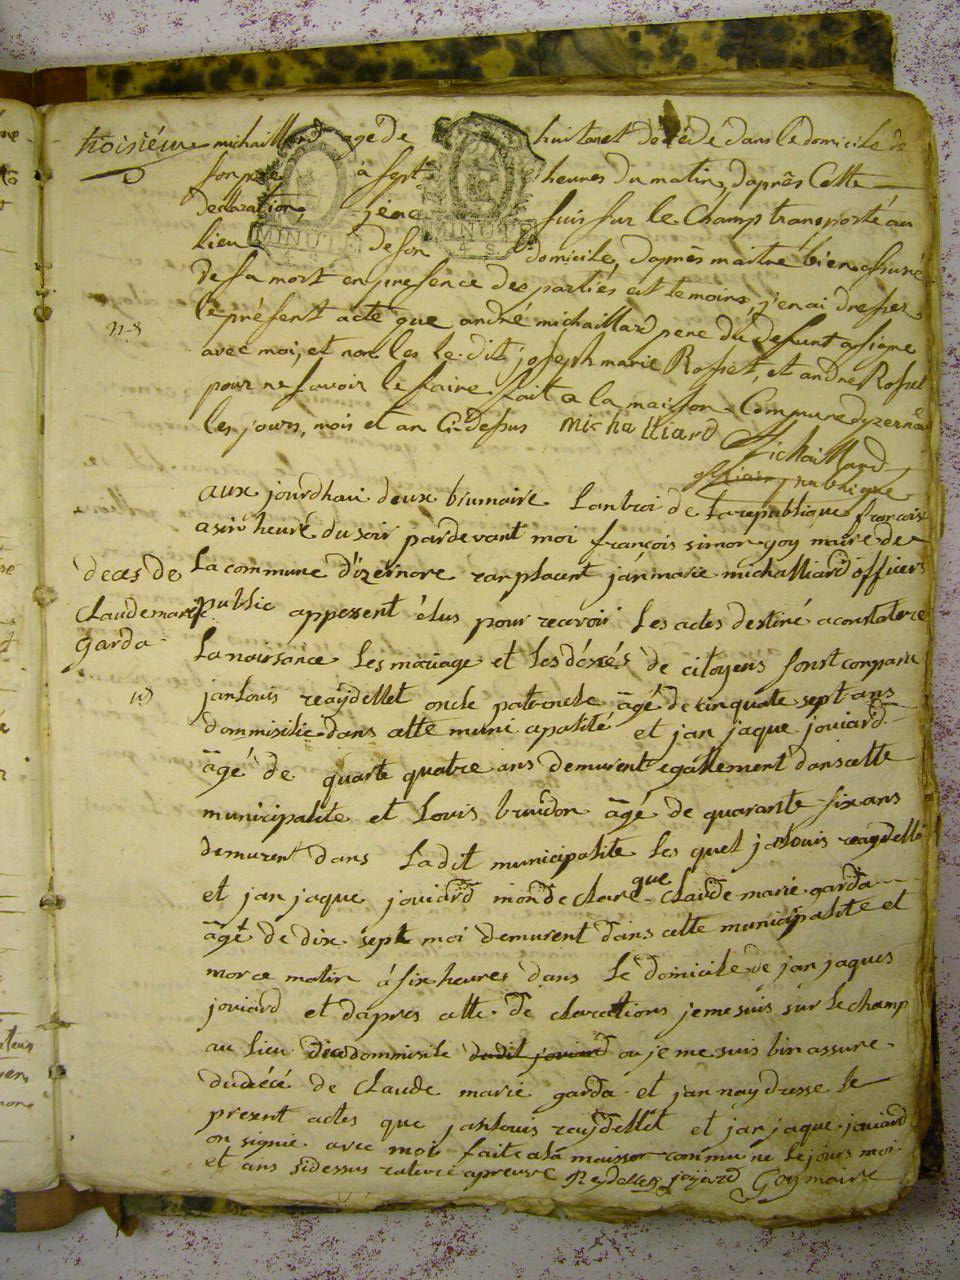 troisiéme michaillard agé de huit ans et decédé dans le domicile de
son pere à sept heures du matin, d'après cette
declaration, je me suis sur le Champ transporté au
lieu de son domicile, d'après m'aitre bien assuré
MINUTE
MINUTE
de sa mort en presence des parties et temoins, j'en ai dressé
le présent acte que andré michaillard pere du defunt a signé
avec moi, et non les le dit joseph marie Rosset, et andre Rosset
pour ne savoir le faire. fait a la maison Commune d'yzernore
les jours, mois et an Ci dessus Michalliard
Michaillard
officier publique
aux jourdhui deux brumaire Lan troi de La republique francoise
a six heure du soir pardevant moi françois simon goy maire de
deces de
Claude marie
garda
La commune d'izernore ramplacent jan marie michalliard officiers
public appozent élus pour recevoir Les actes destiné a constater
La naissance Les mariage et Les décés de citoyens sont comparu
jan Louis reaydellet oncle patronele âgé de cinquate sept ans
dommisilié dans cette municapalité et jan jaque joüiard
âgé de quarte quatre ans demurent egallement dans cette
municipalite et Louis bruidon âgé de quarante six ans
demurent dans Ladit municipalite Les quel ja Louis reaydellet
et jan jaque joüiard mon declare que Claude marie garda
âgé de dix sept moi demurent dans cette municipalité et
mor ce matin à six heures dans Le domicile de jan jaques
joüiard et dapres cette declarations je me suis sur Le champ
au Lieu dommisile dudit joüiard ou je me suis bin assure
du décé de Claude marie garda et jan nay dresse Le
present actes que jan Louis raydellet et jan jaque joüiard
on signié avec moi fait a la maisson commune Le jours moi
et ans sidessus rature apreuve Reydellet joyard Goy maire